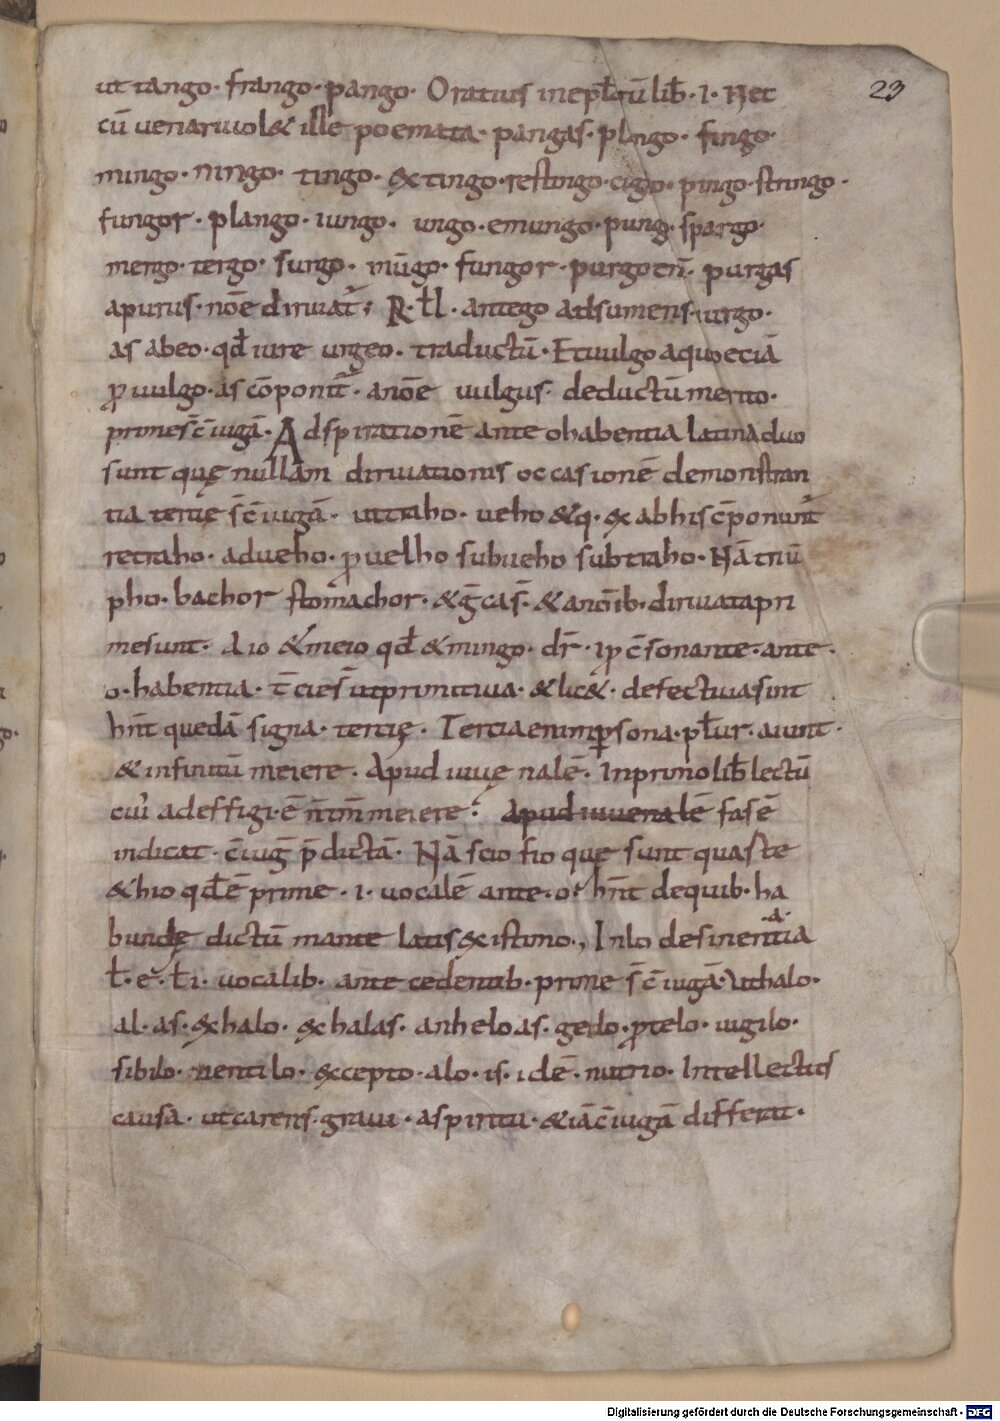 ut tango · frango · pango · Oratius in epl̄arū lib̄ · i · Nec
cū uenari uol& ille poemata · pangas · plango · fingo ·
mingo · ningo · tingo · extingo · restingo · cigo · pingo · stringo ·
fungor · plango · iungo · ungo · emungo · pungo · spargo ·
mergo · tergo · surgo · mūgo · fungor · purgo cn̄ · purgas
apurus · nōe diriuat̄ · R · ł l · ante go adsumens · iurgo ·
as abeo · qd̄ iure urgeo · traductū · Et uulgo a quo eciā
ꝓuulgo · as cōponit̄ · a nōe uulgus deductū merito ·
prime s̄ c̄iugā · Adspirationē ante o habentia latina duo
sunt quę nullam diriuationis occasionē demonstran
tia tercię s̄ c̄iugā · ut traho · ueho & q · ex ab his c̄ponunt̄
retraho · adueho · ꝓuelho subueho subtraho · Nā triū
pho · bachor stomachor · & ḡ cas̄ · & a noīb · diriuata pri
me sunt · Aio & meio qd̄ & mingo · dr̄ · ip̄ c̄sonante · ante ·
o · habentia · t̄cies̄ ut primitiua · & lic& · defectiua sint
hn̄t quedā signa · tercię · Tercia enim ꝑsona · pl̄ur · aiunt ·
& infinitū meiere · Apud iuuęnalē · In primo lib̄ lectū
cui ad effigi · ē n̄ tm̄ meiere · Apud iuuenalē fasē
indicat · c̄iug p̄dictā · Nā scio fio que sunt quaste
& hio qd̄ ē prime · i · uocalē ante · o · hn̄t de quib · ha
bundę dictū mante latis existimo · In lo desinentia
·a·
ł · e · ł i · uocalib · antecedentib · prime s̄ c̄iugā · Ut halo ·
al · as · exhalo · exhalas · anhelo as · gelo · ꝓtelo · uigilo ·
sibilo · uentilo · excepto · alo · is · idē · nutrio · Intellectus
causa · ut carens · graui · aspiritu · & iā c̄iugā differat ·
23
Digitalisierung gefördert durch die Deutsche Forschungsgemeinschaft - DFG